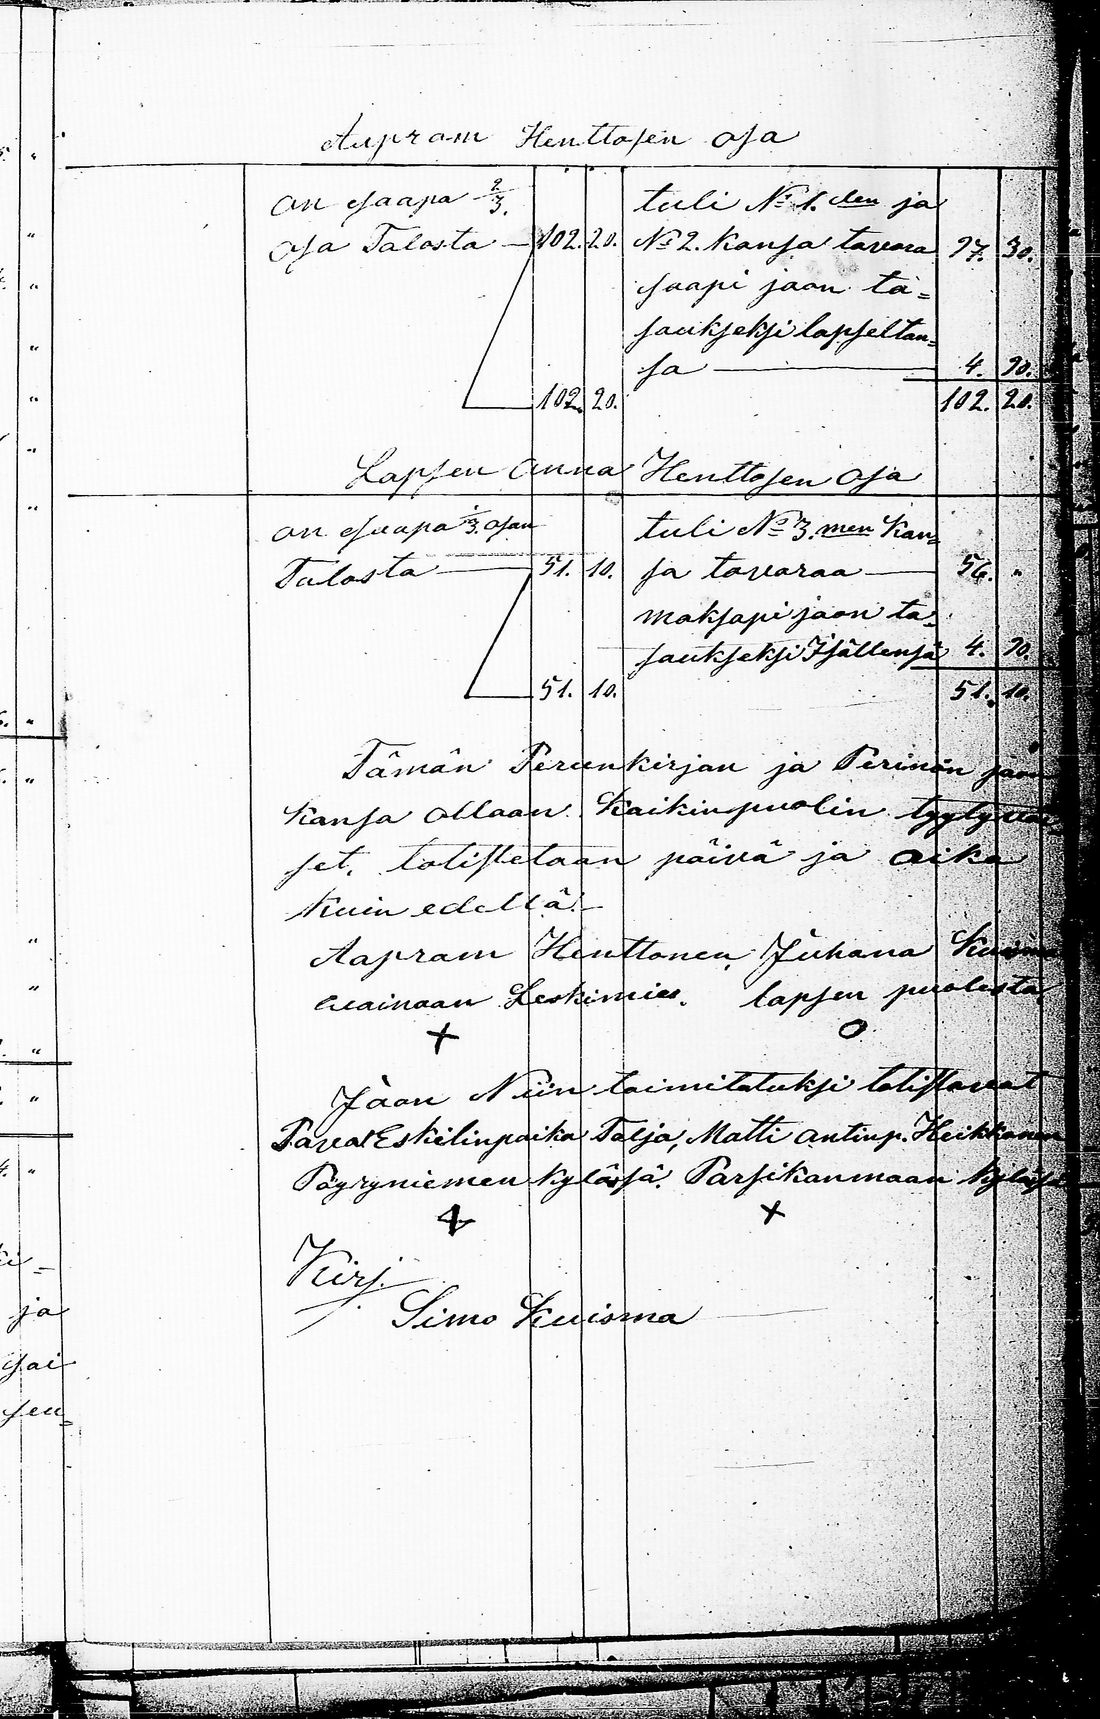 Aapram Henttosen osa
on saapa 2/3.
osa Talosta — 102. 20.
102. 20.
tuli No 1. den ja
No 2. Kansa tavara 97. 30.
saapi jaon ta=
saukseksi lapseltan=
sa — 4. 90.
102. 20.
Lapsen Anna Henttosen osa
on saapa 1/3. osan
Talosta — 51. 10.
51. 10.
tuli No 3. men Kan=
sa tavaraa — 56. "
maksapi jaon ta=
saukseksi Isällensä 4. 90.
51. 10.
Tämän Perunkirjan ja Perinön jaon
Kansa ollaan Kaikinpuolin tyytyväi
set, totistetaan päivä ja aika
Kuin edellä.—
Aapram Henttonen, Juhana Kuisma
vainaan Leskimies. lapsen puolesta
+ o
Jaon Niin toimitetuksi totistavat
Pavat Eskelinpoika Talja, Matti Antinp. Heikkonen
Pöyryniemen Kylässä. Parsikanmaan Kylässä
+
Kirj.
Simo Kuisma
ja
sai
sen=